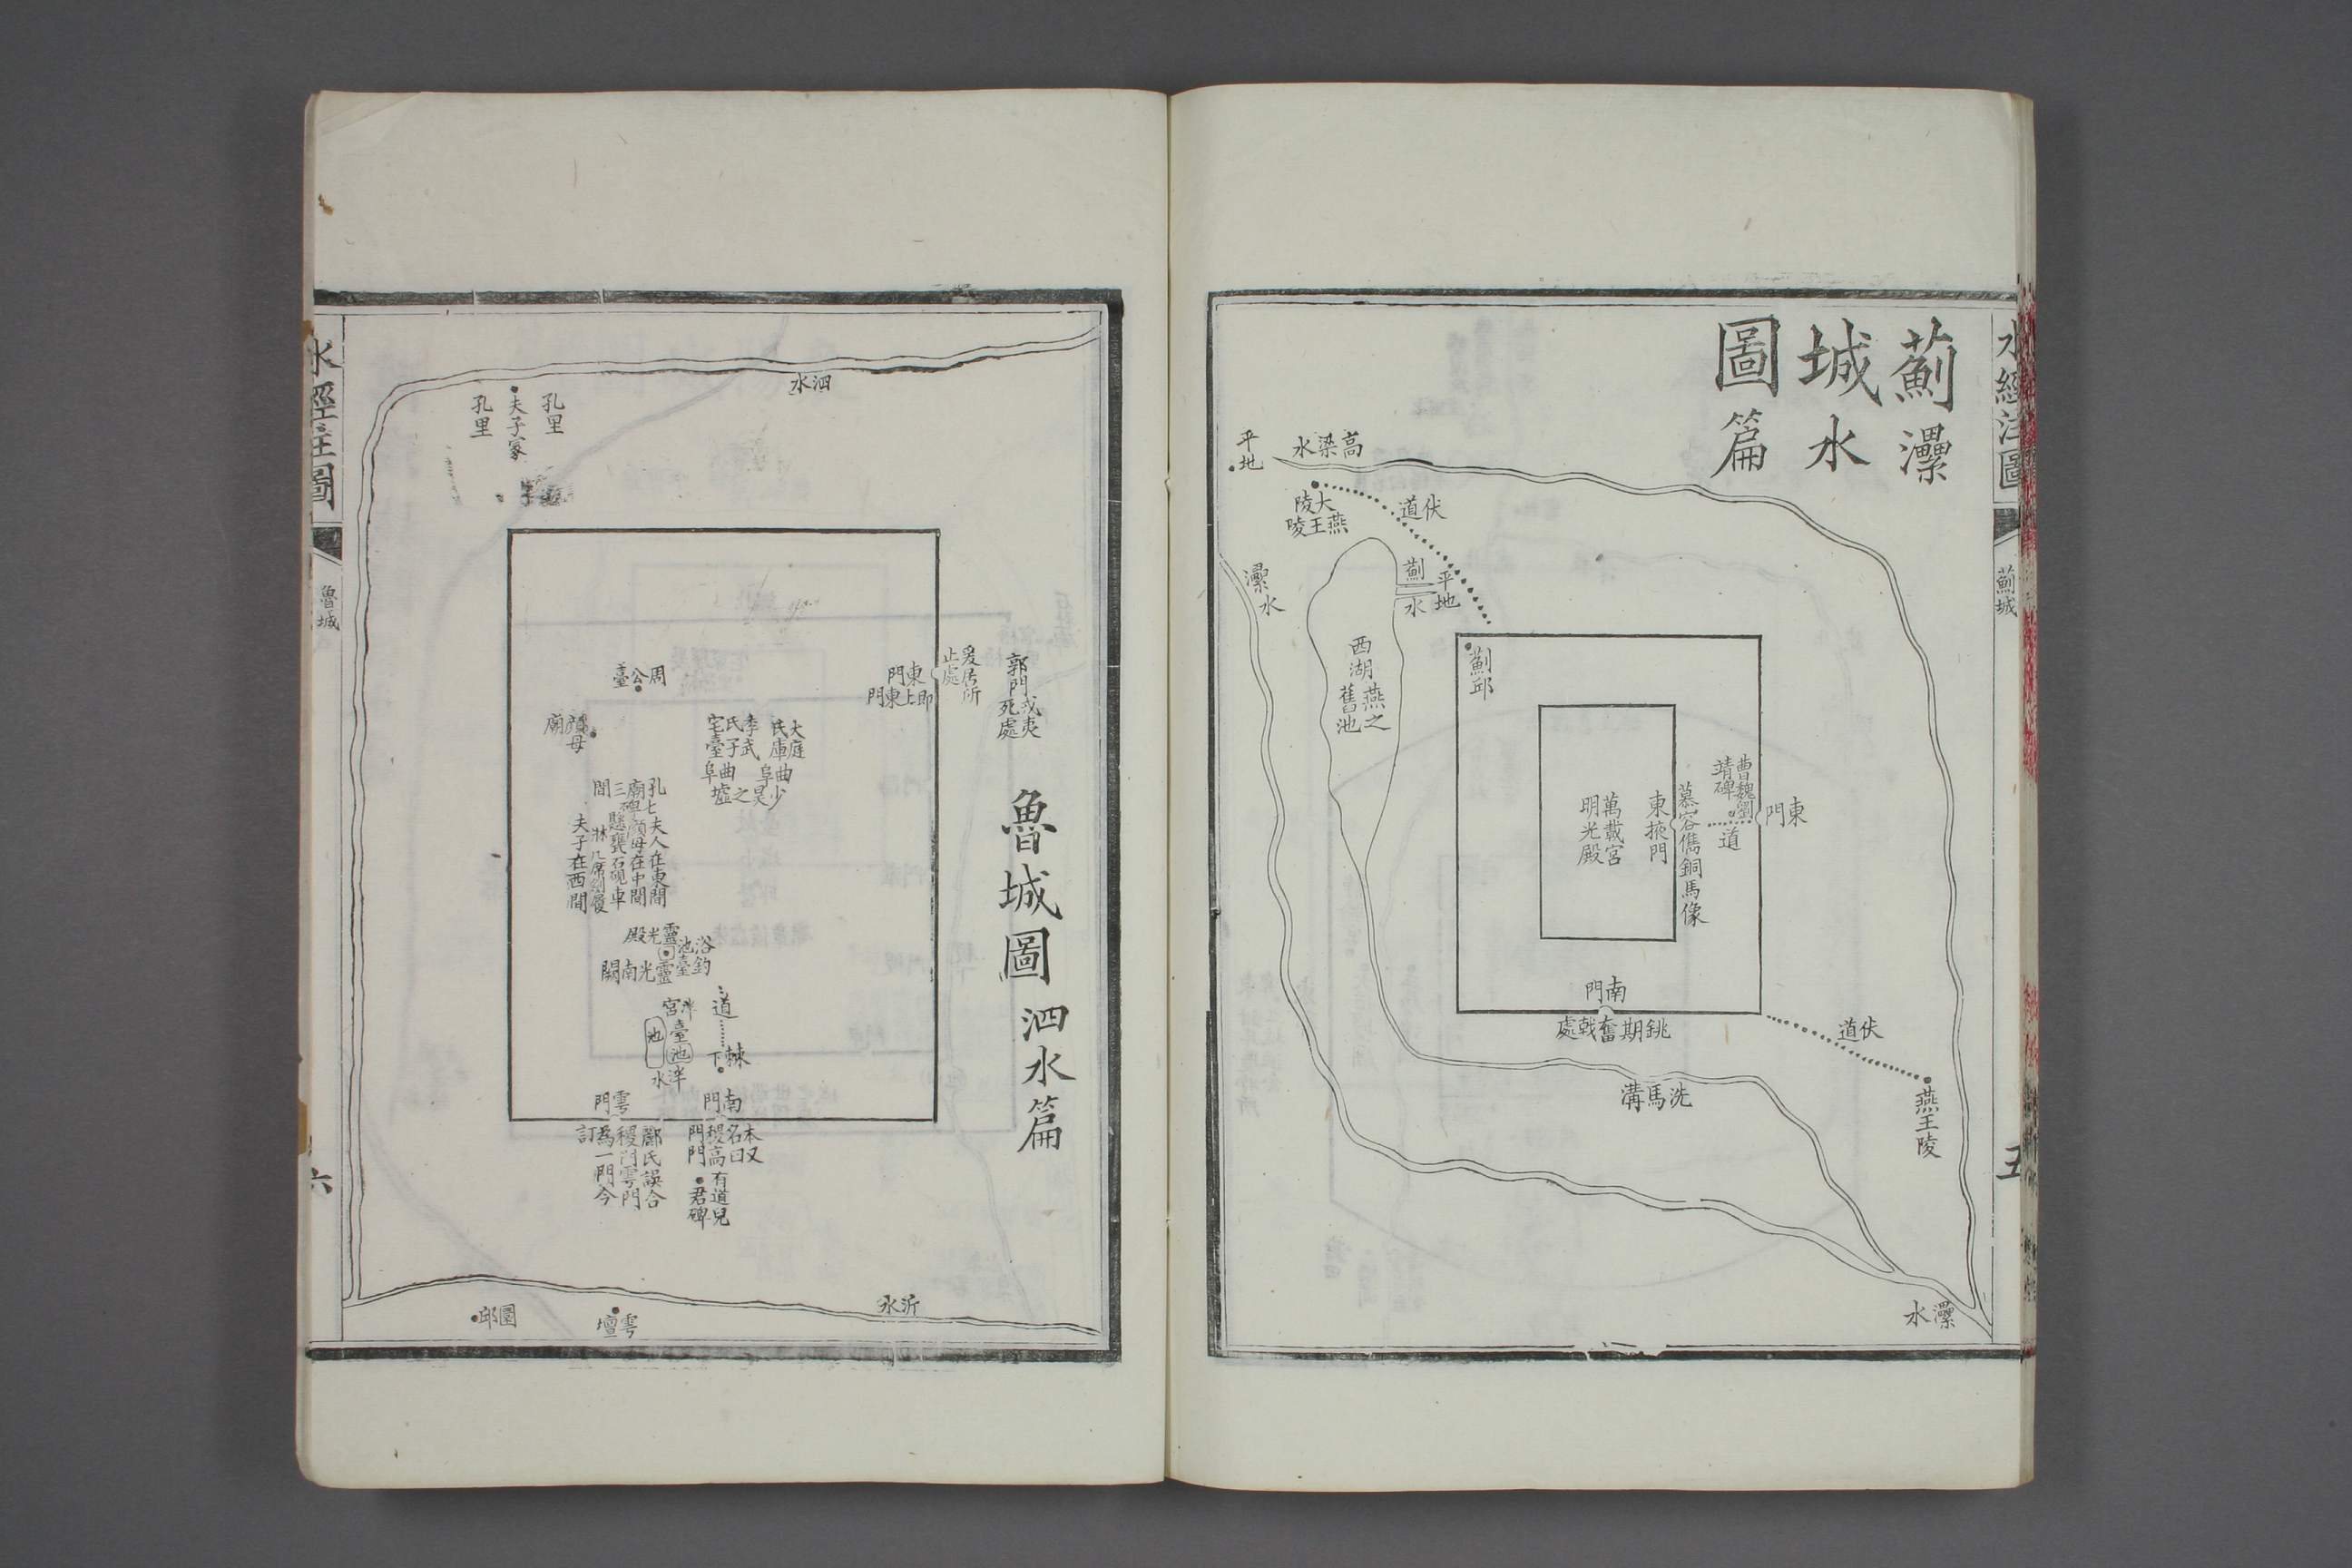 薊城圖
灅水篇
高梁水
平地
大陵
燕王陵
伏道
灅水
薊水
平地
西湖
燕之舊池
薊邱
曹魏劉靖碑
東門
道
慕容儁銅馬像
東掖門
萬載宮
明光殿
南門
銚期奮戟處
伏道
燕王陵
洗馬溝
灅水
薊城
五
魯城圖
泗水篇
泗水
孔里
夫子冢
孔里
郭門
戎夷死處
爰居所止處
東門
即上東門
周公臺
顏母廟
大庭氏庫
曲阜
少昊之墟
季武子臺
氏宅
曲阜
孔廟
七碑
三間
夫人在東間
顏母在中間
夫子在西間
懸甕石硯車
牀几席劍履
靈光殿
靈光南闕
浴池
釣臺
泮宮
臺
池
池
泮水
道
棘下
南門
雩門
本名稷門
又曰高門
酈氏誤合
稷門雩門
為一門今
訂
有道兒君碑
沂水
雩壇
圜邱
水經注圖
魯城
六